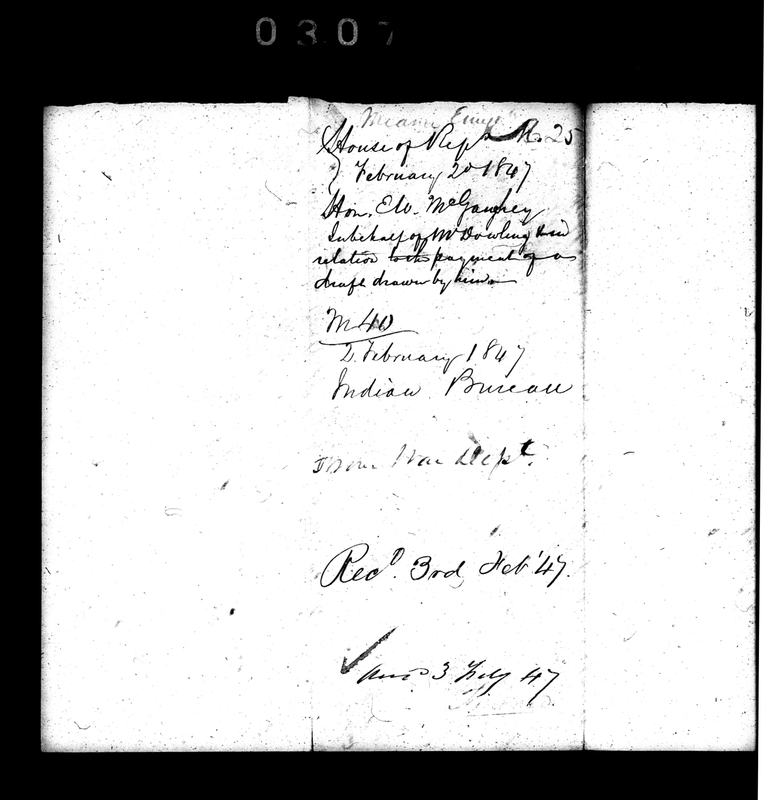 0307
Miami Emign
House of Reps M. 25
February 2d 1847
Hon. E. W. McGaughey
In behalf of Mr Dowling & in
relation to the payment of a
draft drawn by him
M 40
2 February 1847
Indian Bureau
From War Dept.
Recd. 3rd Feb '47.
Ansd 3 Feby 47